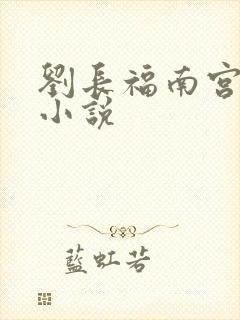 劉長福南宮
小說
藍虹若